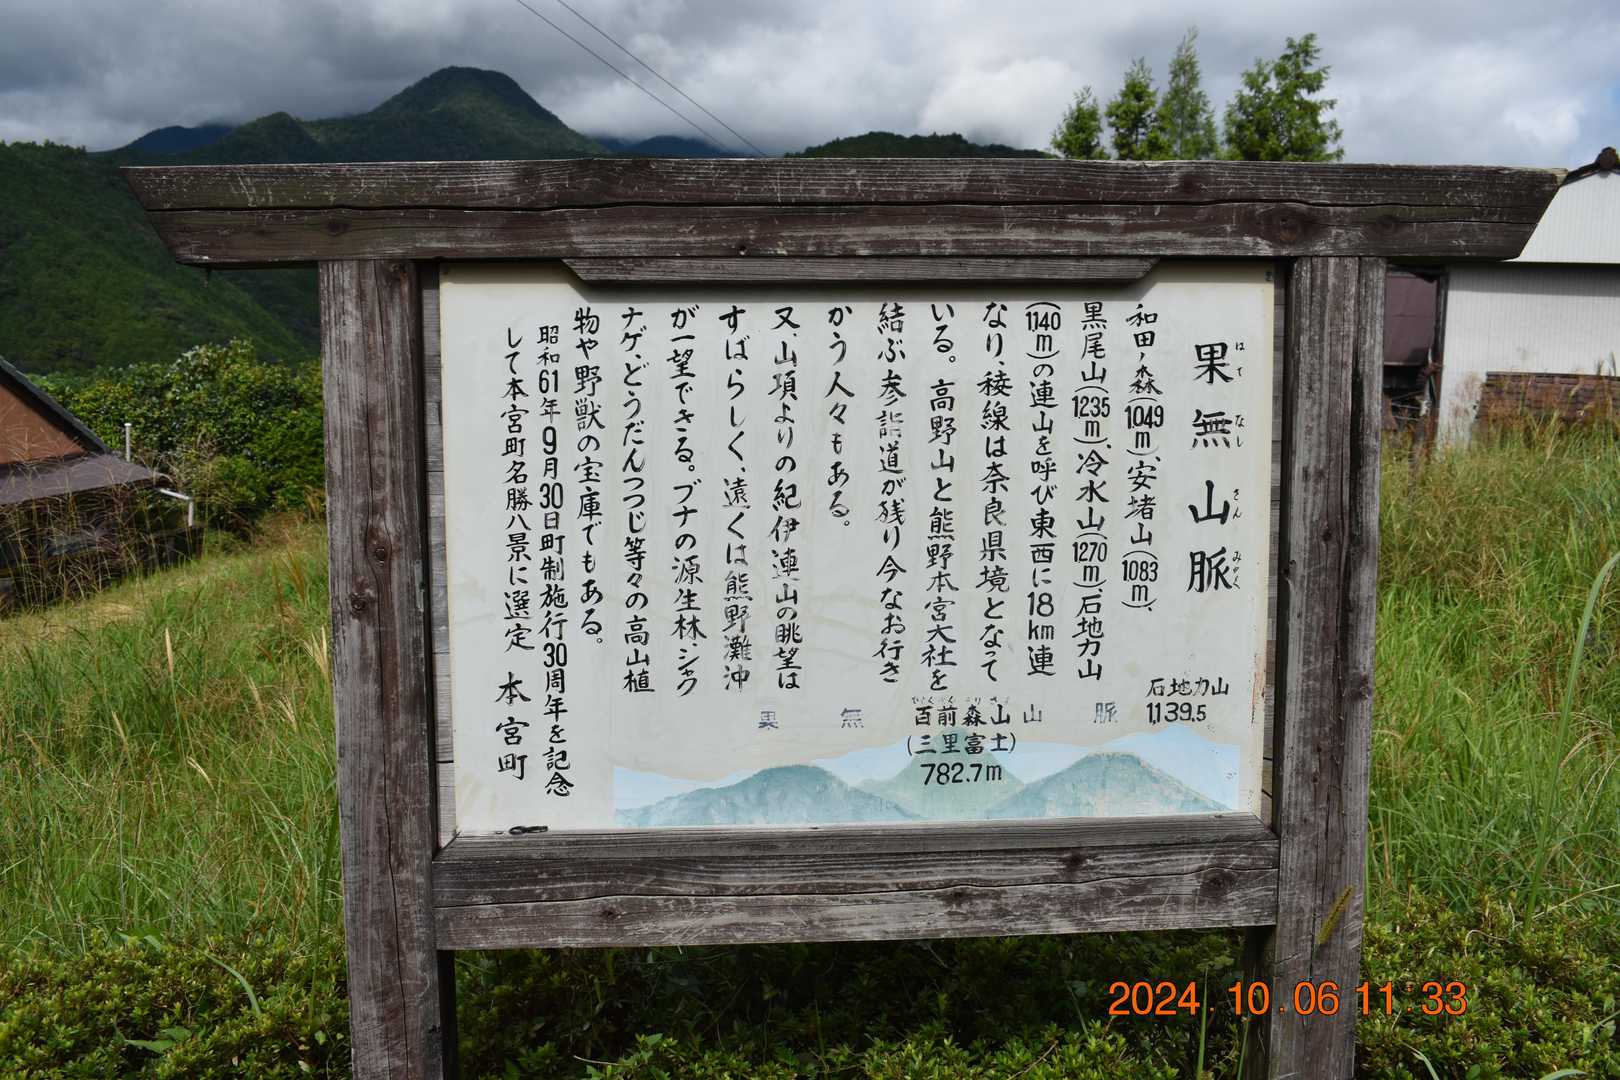 果無山脈
はてなしさんみゃく
和田ノ森(1049m)、安堵山(1083m)、
黒尾山(1235m)、冷水山(1270m)、石地力山
(1140m)の連山を呼び東西に18km連
なり、稜線は奈良県境となって
いる。高野山と熊野本宮大社を
結ぶ参詣道が残り今なお行き
かう人々もある。
又、山項よりの紀伊連山の眺望は
すばらしく、遠くは熊野灘沖
が一望できる。ブナの源生林、シャク
ナゲ、どうだんつつじ等々の高山植
物や野獣の宝庫でもある。
昭和61年9月30日町制施行30周年を記念
して本宮町名勝八景に選定 本宮町
石地力山
1,139.5
果無山脈
百前森山
(三里富士)
782.7m
2024.10.06 11:33